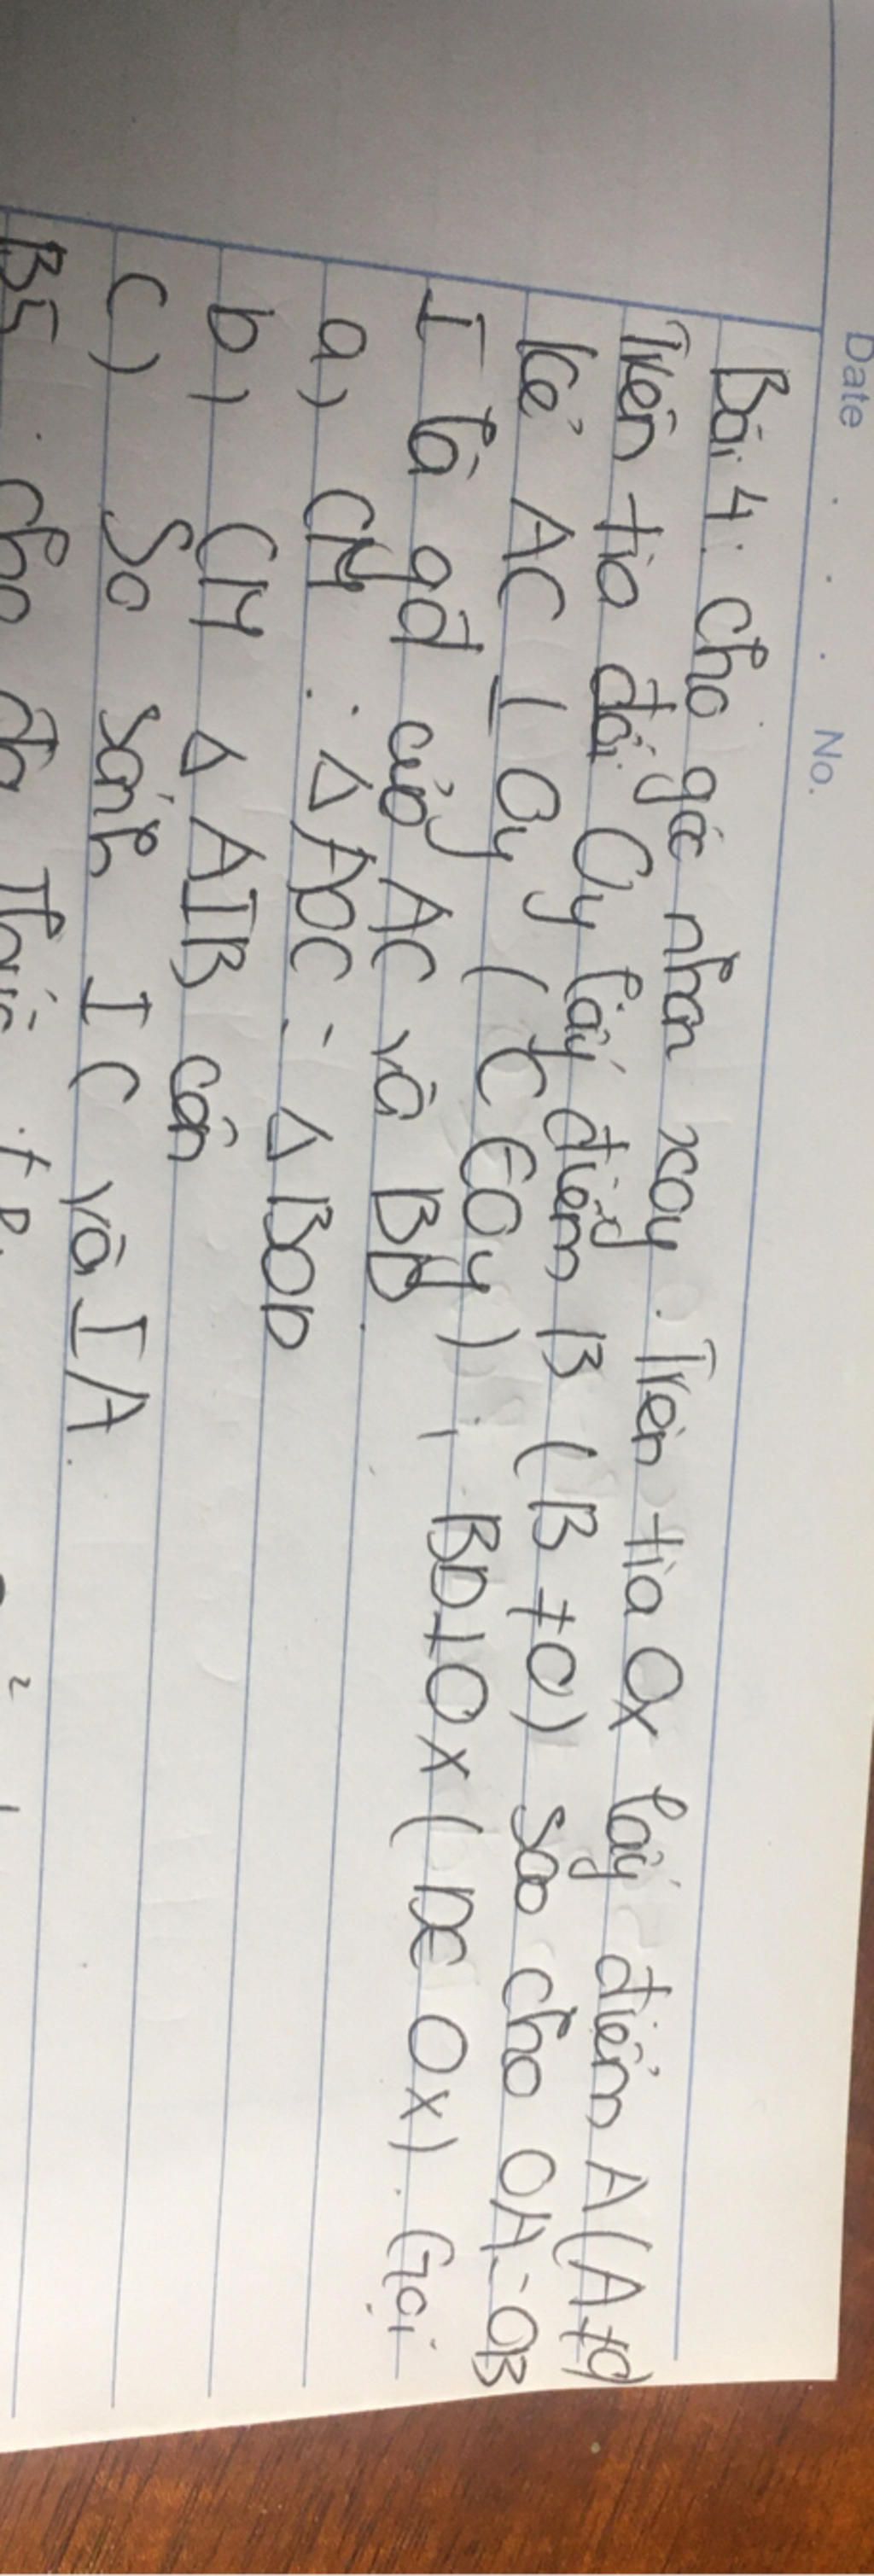 Date No.
Bài 4: Cho góc nhọn xoy. Trên tia Ox lấy điểm A (A≠O)
Trên tia đối Oy lấy điểm B (B≠O) sao cho OA=OB
Kẻ AC ⊥ Oy (C∈Oy); BD⊥Ox (D∈Ox). Gọi
I là gđ của AC và BD.
a) CM: ΔAOC = ΔBOD
b) CM Δ AIB cân
c) So sánh IC và IA.
B5: Cho đa thức